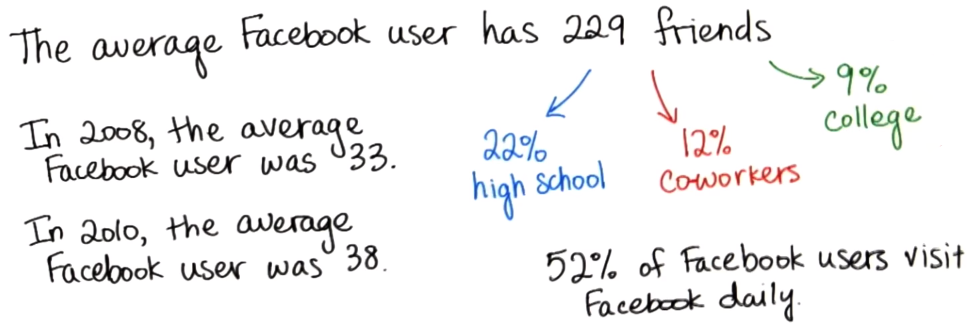 The average Facebook user has 229 friends
22%
high school
12%
coworkers
9%
college
In 2008, the average
Facebook user was 33.
In 2010, the average
Facebook user was 38.
52% of Facebook users visit
Facebook daily.